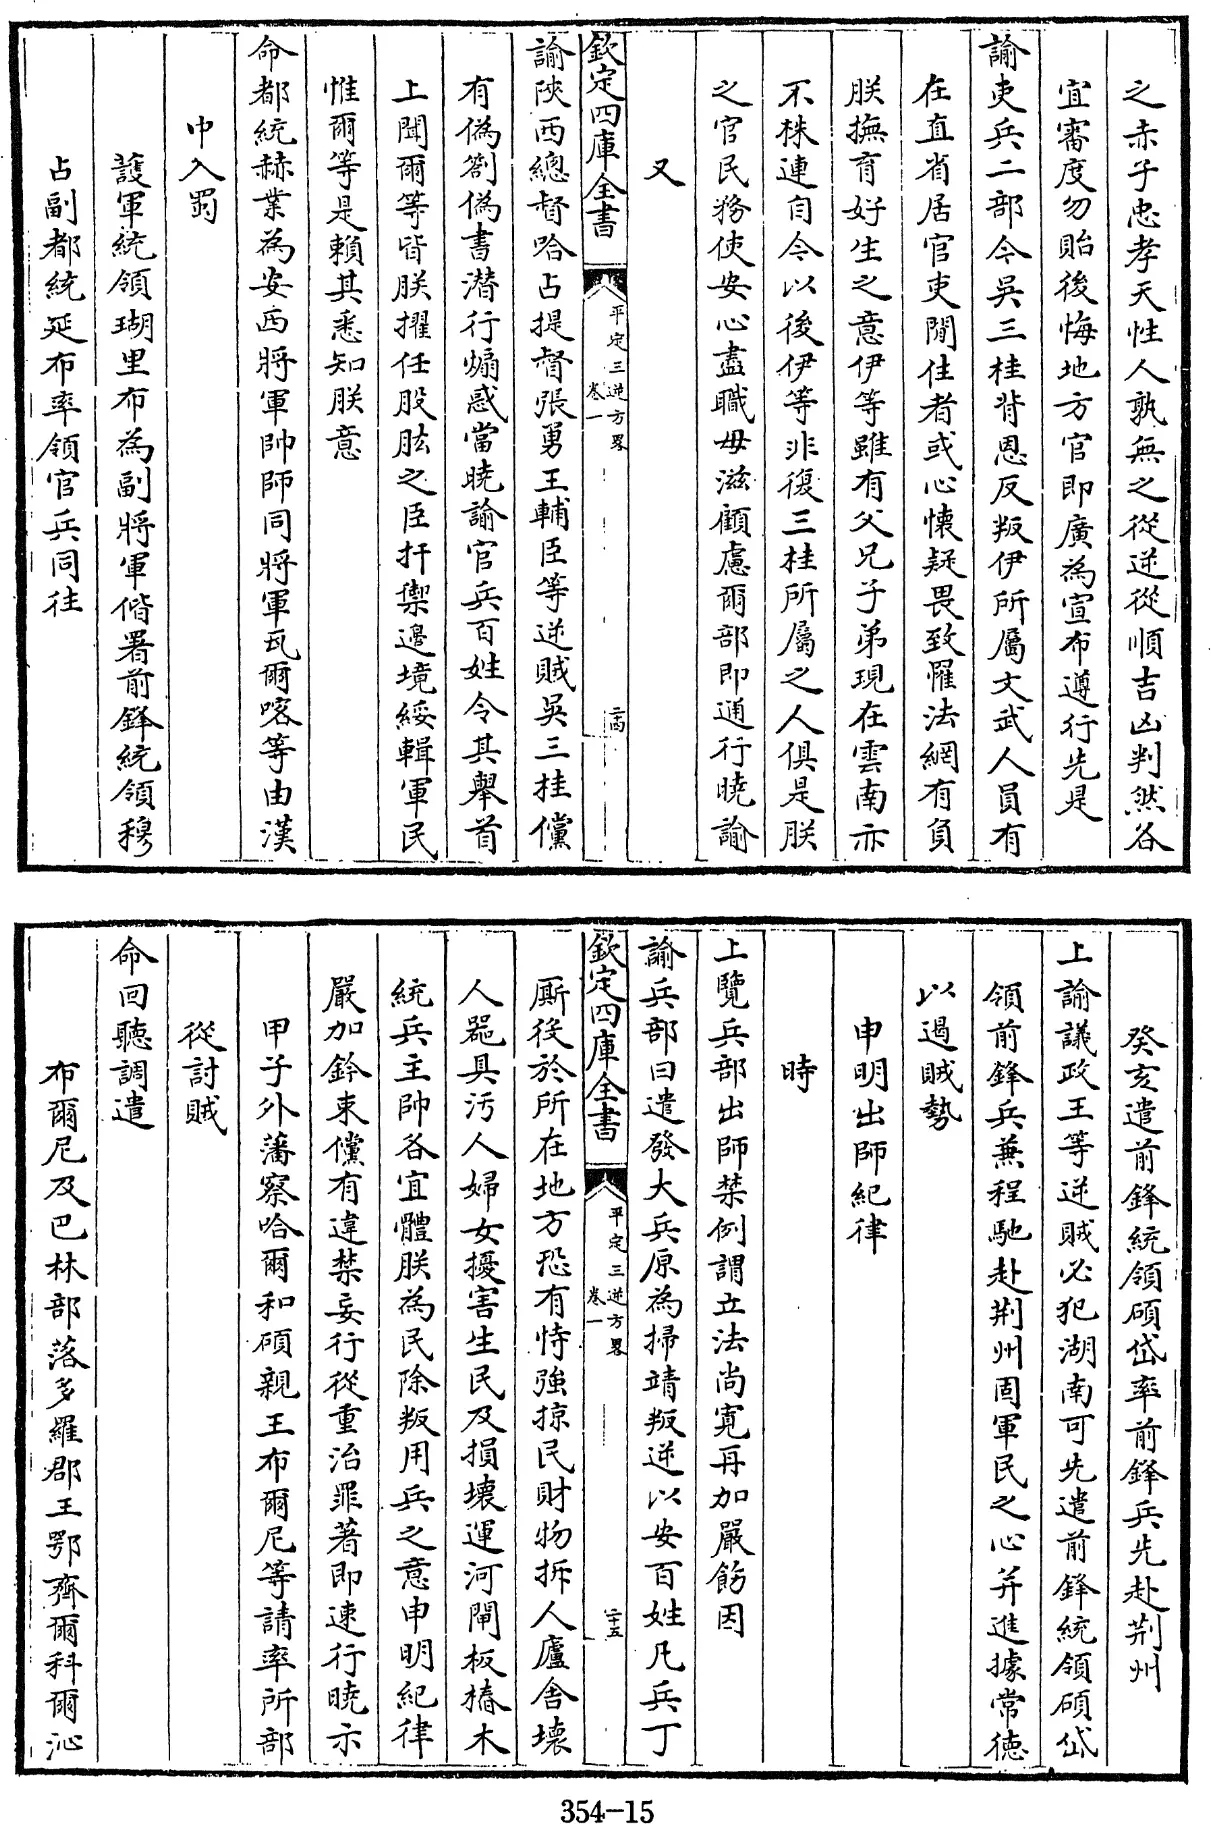 之赤子忠孝天性人孰無之從逆從順吉凶判然各
宜審度勿貽後悔地方官即廣為宣布遵行先是
諭吏兵二部令吳三桂背恩反叛伊所屬文武人員有
在直省居官吏閒住者或心懷疑畏致罹法網有負
朕撫育好生之意伊等雖有父兄子弟現在雲南亦
不株連自今以後伊等非復三桂所屬之人俱是朕
之官民務使安心盡職毋滋顧慮爾部即通行曉諭
又
欽定四庫全書
平定三逆方畧
卷一
二十四
諭陝西總督哈占提督張勇王輔臣等逆賊吳三桂儻
有偽劄偽書潛行煽惑當曉諭官兵百姓令其舉首
上聞爾等皆朕擢任股肱之臣扞禦邊境綏輯軍民
惟爾等是賴其悉知朕意
命都統赫業為安西將軍帥師同將軍瓦爾喀等由漢
中入蜀
護軍統領瑚里布為副將軍偕署前鋒統領穆
占副都統延布率領官兵同往
癸亥遣前鋒統領碩岱率前鋒兵先赴荆州
上諭議政王等逆賊必犯湖南可先遣前鋒統領碩岱
領前鋒兵兼程馳赴荆州固軍民之心并進據常德
以遏賊勢
申明出師紀律
時
上覽兵部出師禁例謂立法尚寬再加嚴飭因
諭兵部曰遣發大兵原為掃靖叛逆以安百姓凡兵丁
欽定四庫全書
平定三逆方畧
卷一
二十五
厮役於所在地方恐有恃強掠民財物拆人廬舍壞
人器具污人婦女擾害生民及損壞運河閘板樁木
統兵主帥各宜體朕為民除叛用兵之意申明紀律
嚴加鈐束儻有違禁妄行從重治罪著即速行曉示
甲子外藩察哈爾和碩親王布爾尼等請率所部
從討賊
命回聽調遣
布爾尼及巴林部落多羅郡王鄂齊爾科爾沁
354-15